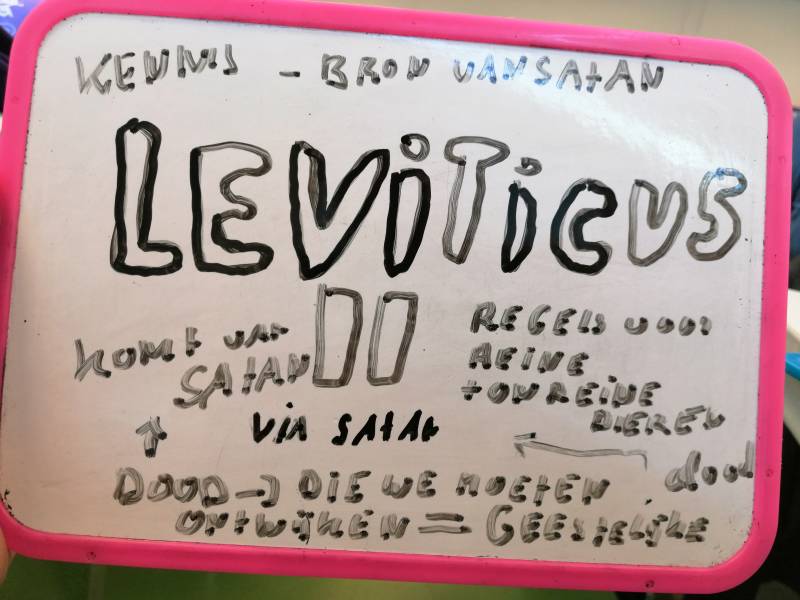 KENNIS - BRON VAN SATAN
LEViTiCUS
11
KOMT VAN
SATAN
REGELS VOOR
REINE
+ ONREINE
DIEREN
VIA SATAN
DOOD → DIE WE MOETEN
dood
ONTWIJKEN = GEESTELIJKE